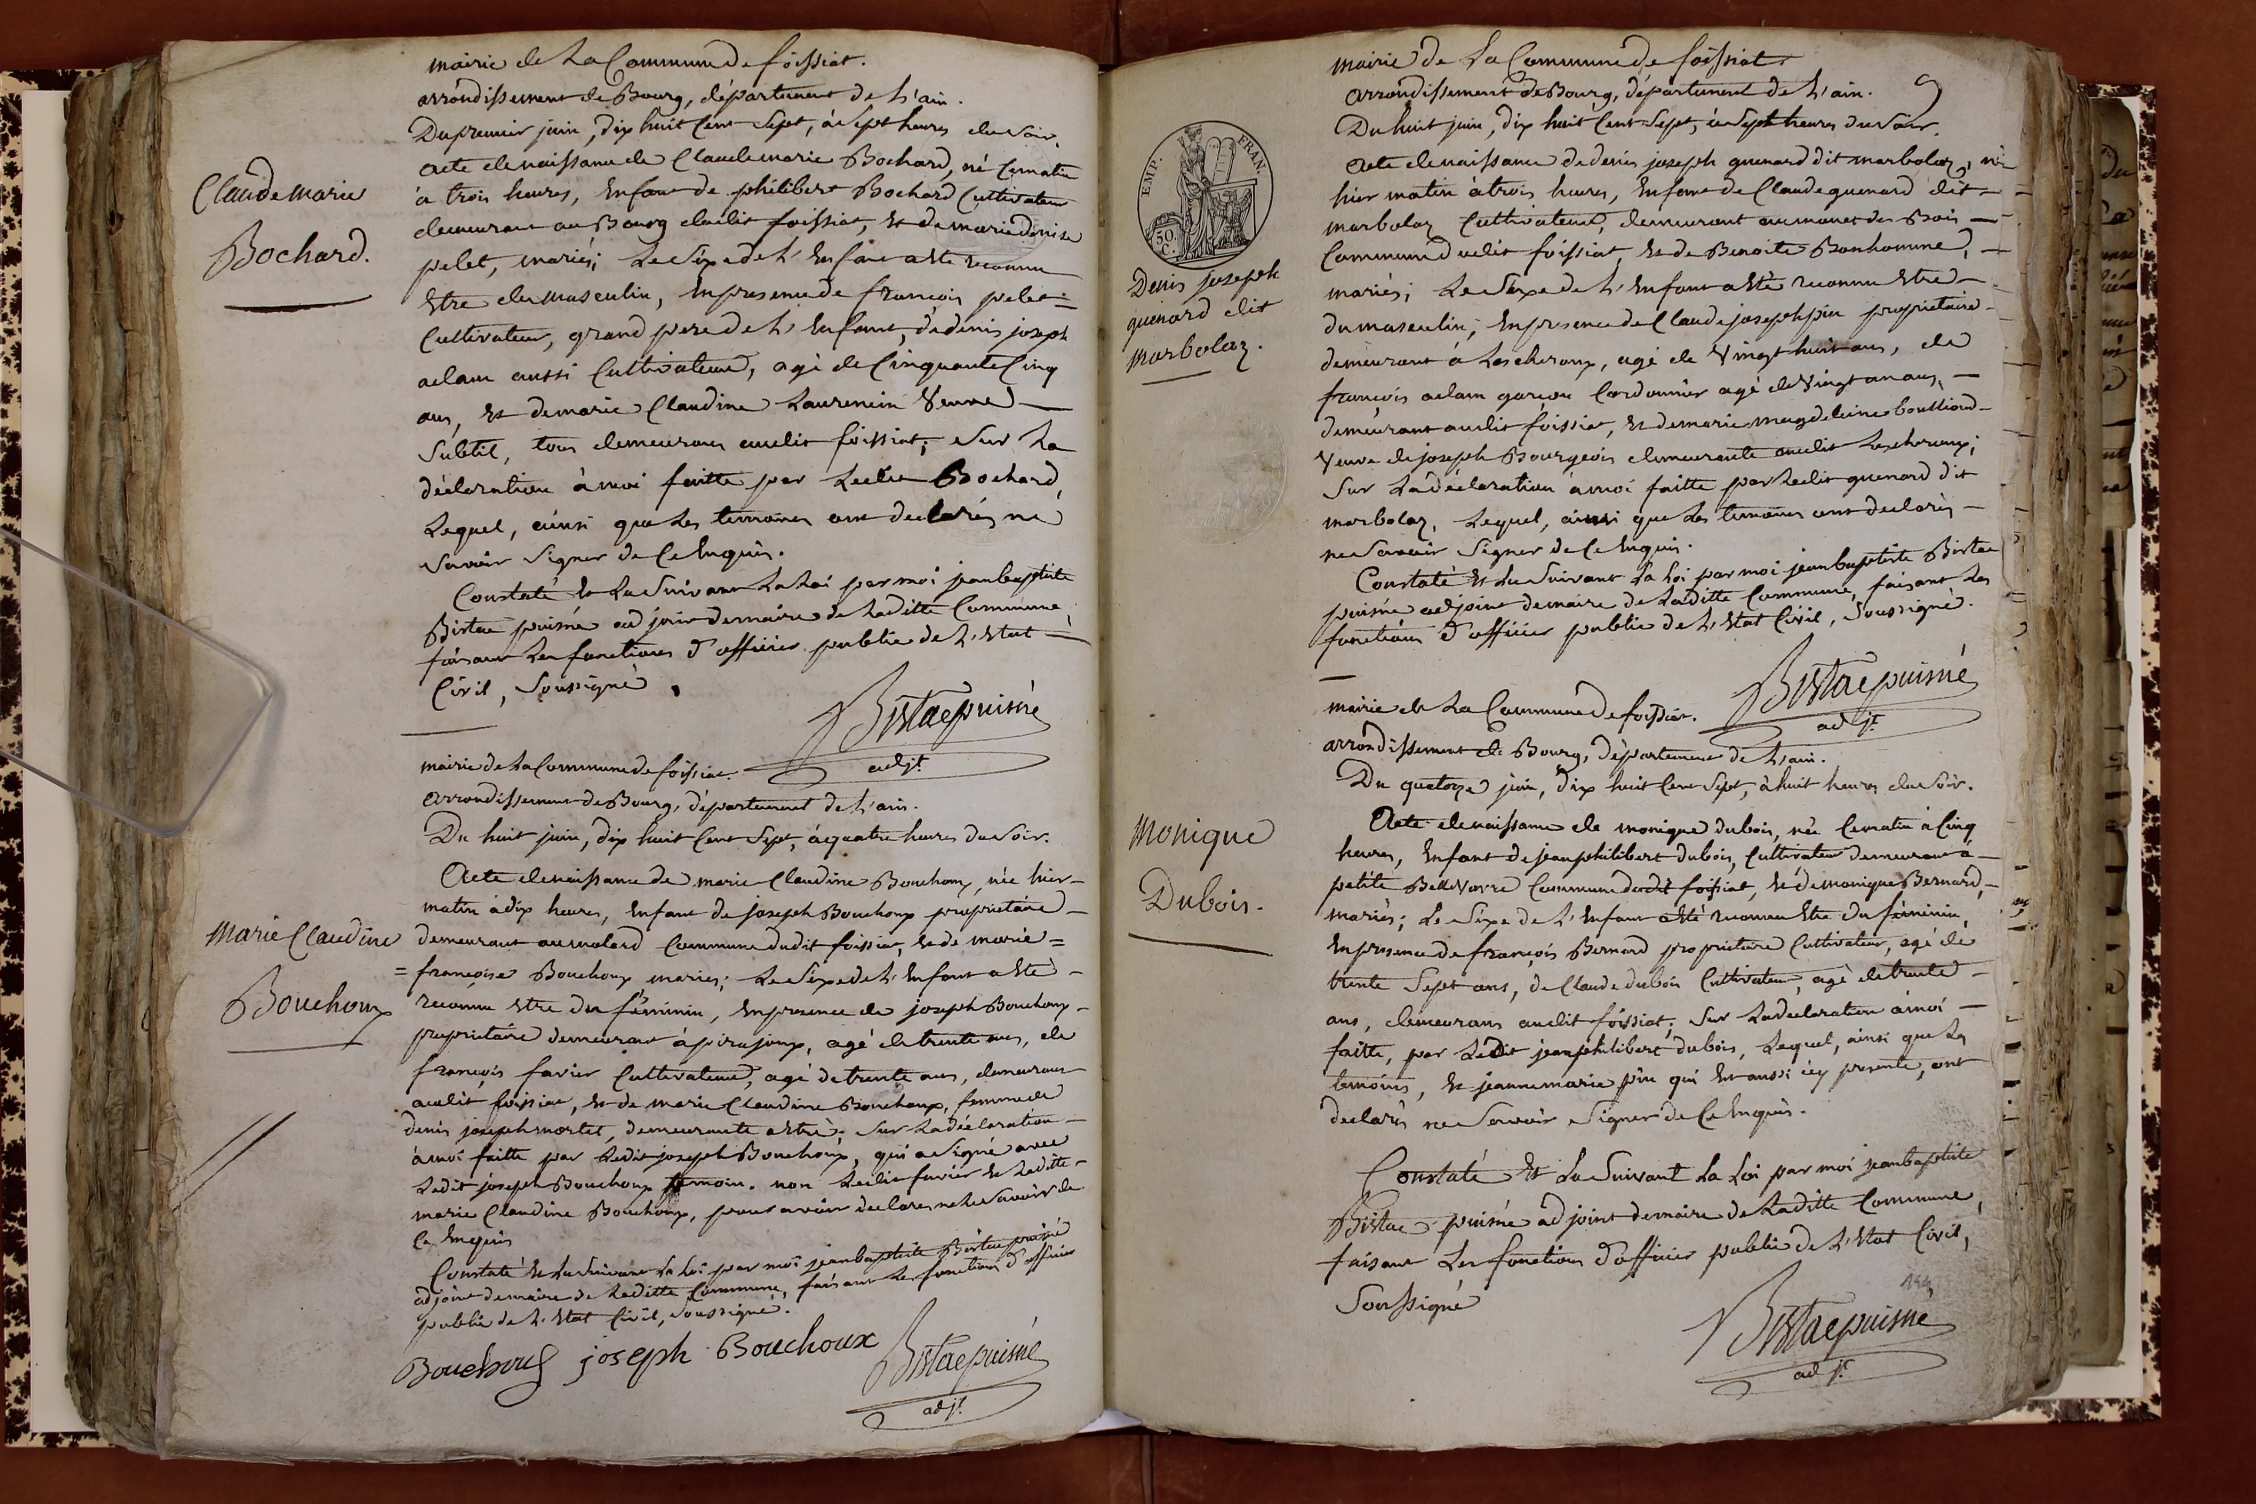 mairie de La Commune de foissiat.
arrondissement de Bourg, département de L'ain.
Du premier juin, dix huit Cent Sept, à Sept heures du Soir.
Acte de naissance de Claude marie Bochard, né Cematin
à trois heures, Enfant de philibert Bochard Cultivateur
demeurant au Bourg dudit foissiat, Et de marie denise
pelet, mariés; Le Sexe de L'Enfant a Eté reconnu
Etre du Masculin, En presence de françois pelet =
Cultivateur, grand pere de L'Enfant, de denis joseph
adam aussi Cultivateur, agé de Cinquante Cinq
ans, Et de marie Claudine Laurencin Veuve
Subtil, tous demeurans audit foissiat; Sur La
déclaration à moi faitte par Ledit Bochard,
Lequel, ainsi que Les temoins ont declarés ne
Savoir Signer de Ce Enquis.
Constaté Et Lu Suivant La Loi par moi jean baptiste
Bistac puisné adjoint demaire de Laditte Commune
faisant Les fonctions d'officier public de L'Etat
Civil, Soussigné.
Bistac puisné
adjt
Claude Marie
Bochard.
mairie de La Commune de foissiat.
Arrondissement de Bourg, département de L'ain.
Du huit juin, dix huit Cent Sept, à quatre heures du Soir.
Acte de naissance de marie Claudine Bouchoux, née hier
matin à dix heures, Enfant de joseph Bouchoux proprietaire
demeurant au molard Commune dudit foissiat, Et de marie =
= françoise Bouchoux, mariés; Le Sexe de L'Enfant a Eté
reconnu Etre du féminin, En presence de joseph Bouchoux
proprietaire demeurant à pirajoux, agé de trente ans, de
françois favier Cultivateur, agé de trente ans, demeurant
audit foissiat, Et de marie Claudine Bouchoux, femme de
denis joseph mortet, demeurante à Etré; Sur La déclaration
à moi faitte par Ledit joseph Bouchoux, qui a Signé avec
Ledit joseph Bouchoux temoin. non Ledit favier Et Laditte
marie Claudine Bouchoux, pour avoir declarés ne Le Savoir de
Ce Enquis
Constaté Et Lu Suivant La Loi par moi jean baptiste Bistac puisné
adjoint demaire de Laditte Commune, faisant Les fonctions d'officier
public de L'Etat Civil, Soussigné.
Bouchoux joseph Bouchoux
Bistac puisné
adjt
Marie Claudine
Bouchoux
mairie de La Commune de foissiat
arrondissement de Bourg, département de L'ain.
Du huit juin, dix huit Cent Sept, à Sept heures du Soir.
Acte de naissance de denis joseph guenard dit marbolaz, né
hier matin à trois heures, Enfant de Claude guenard dit
marbolaz Cultivateur, demeurant au manet des Bois
Commune dudit foissiat, Et de Benoite Bonhomme,
mariés; Le Sexe de L'Enfant a Eté reconnu Etre
du masculin; En presence de Claude joseph pin proprietaire
demeurant à Lescheroux, agé de Vingt huit ans, de
françois adam garçon Cordonnier agé de Vingt un ans,
demeurant audit foissiat, Et de marie magdeleine boulliand
Veuve de joseph Bourgeois demeurante audit Lescheroux;
Sur La déclaration à moi faitte par Ledit guenard dit
marbolaz, Lequel, ainsi que Les temoins ont declarés
ne Savoir Signer de Ce Enquis.
Constaté Et Lu Suivant La Loi par moi jean baptiste Bistac
puisné adjoint demaire de Laditte Commune, faisant Les
fonctions d'officier public de L'Etat Civil, Soussigné.
Bistac puisné
adjt
EMP. FRAN.
50.
C.
Denis joseph
guenard dit
Marbolaz.
mairie de La Commune de foissiat.
arrondissement de Bourg, département de L'ain.
Du quatorze juin, dix huit Cent Sept, à huit heures du Soir.
Acte de naissance de monique dubois, née Cematin à Cinq
heures, Enfant de jean philibert dubois, Cultivateur demeurant à
petite Bellevavre Commune dudit foissiat, Et de monique Bernard,
mariés; Le Sexe de L'Enfant a Eté reconnu Etre du féminin,
En presence de françois Bernard proprietaire Cultivateur, agé de
trente Sept ans, de Claude dubois Cultivateur, agé de trente
ans, demeurans audit foissiat; Sur La declaration à moi
faitte, par Ledit jean philibert dubois, Lequel, ainsi que Les
temoins, Et jeanne marie pin qui Est aussi icy presente, ont
declarés ne Savoir Signer de Ce Enquis.
Constaté Et Lu Suivant La Loi par moi jean baptiste
Bistac puisné adjoint demaire de Laditte Commune,
faisant Les fonctions d'officier public de L'Etat Civil,
Soussigné
144
Bistac puisné
adjt
Monique
Dubois.